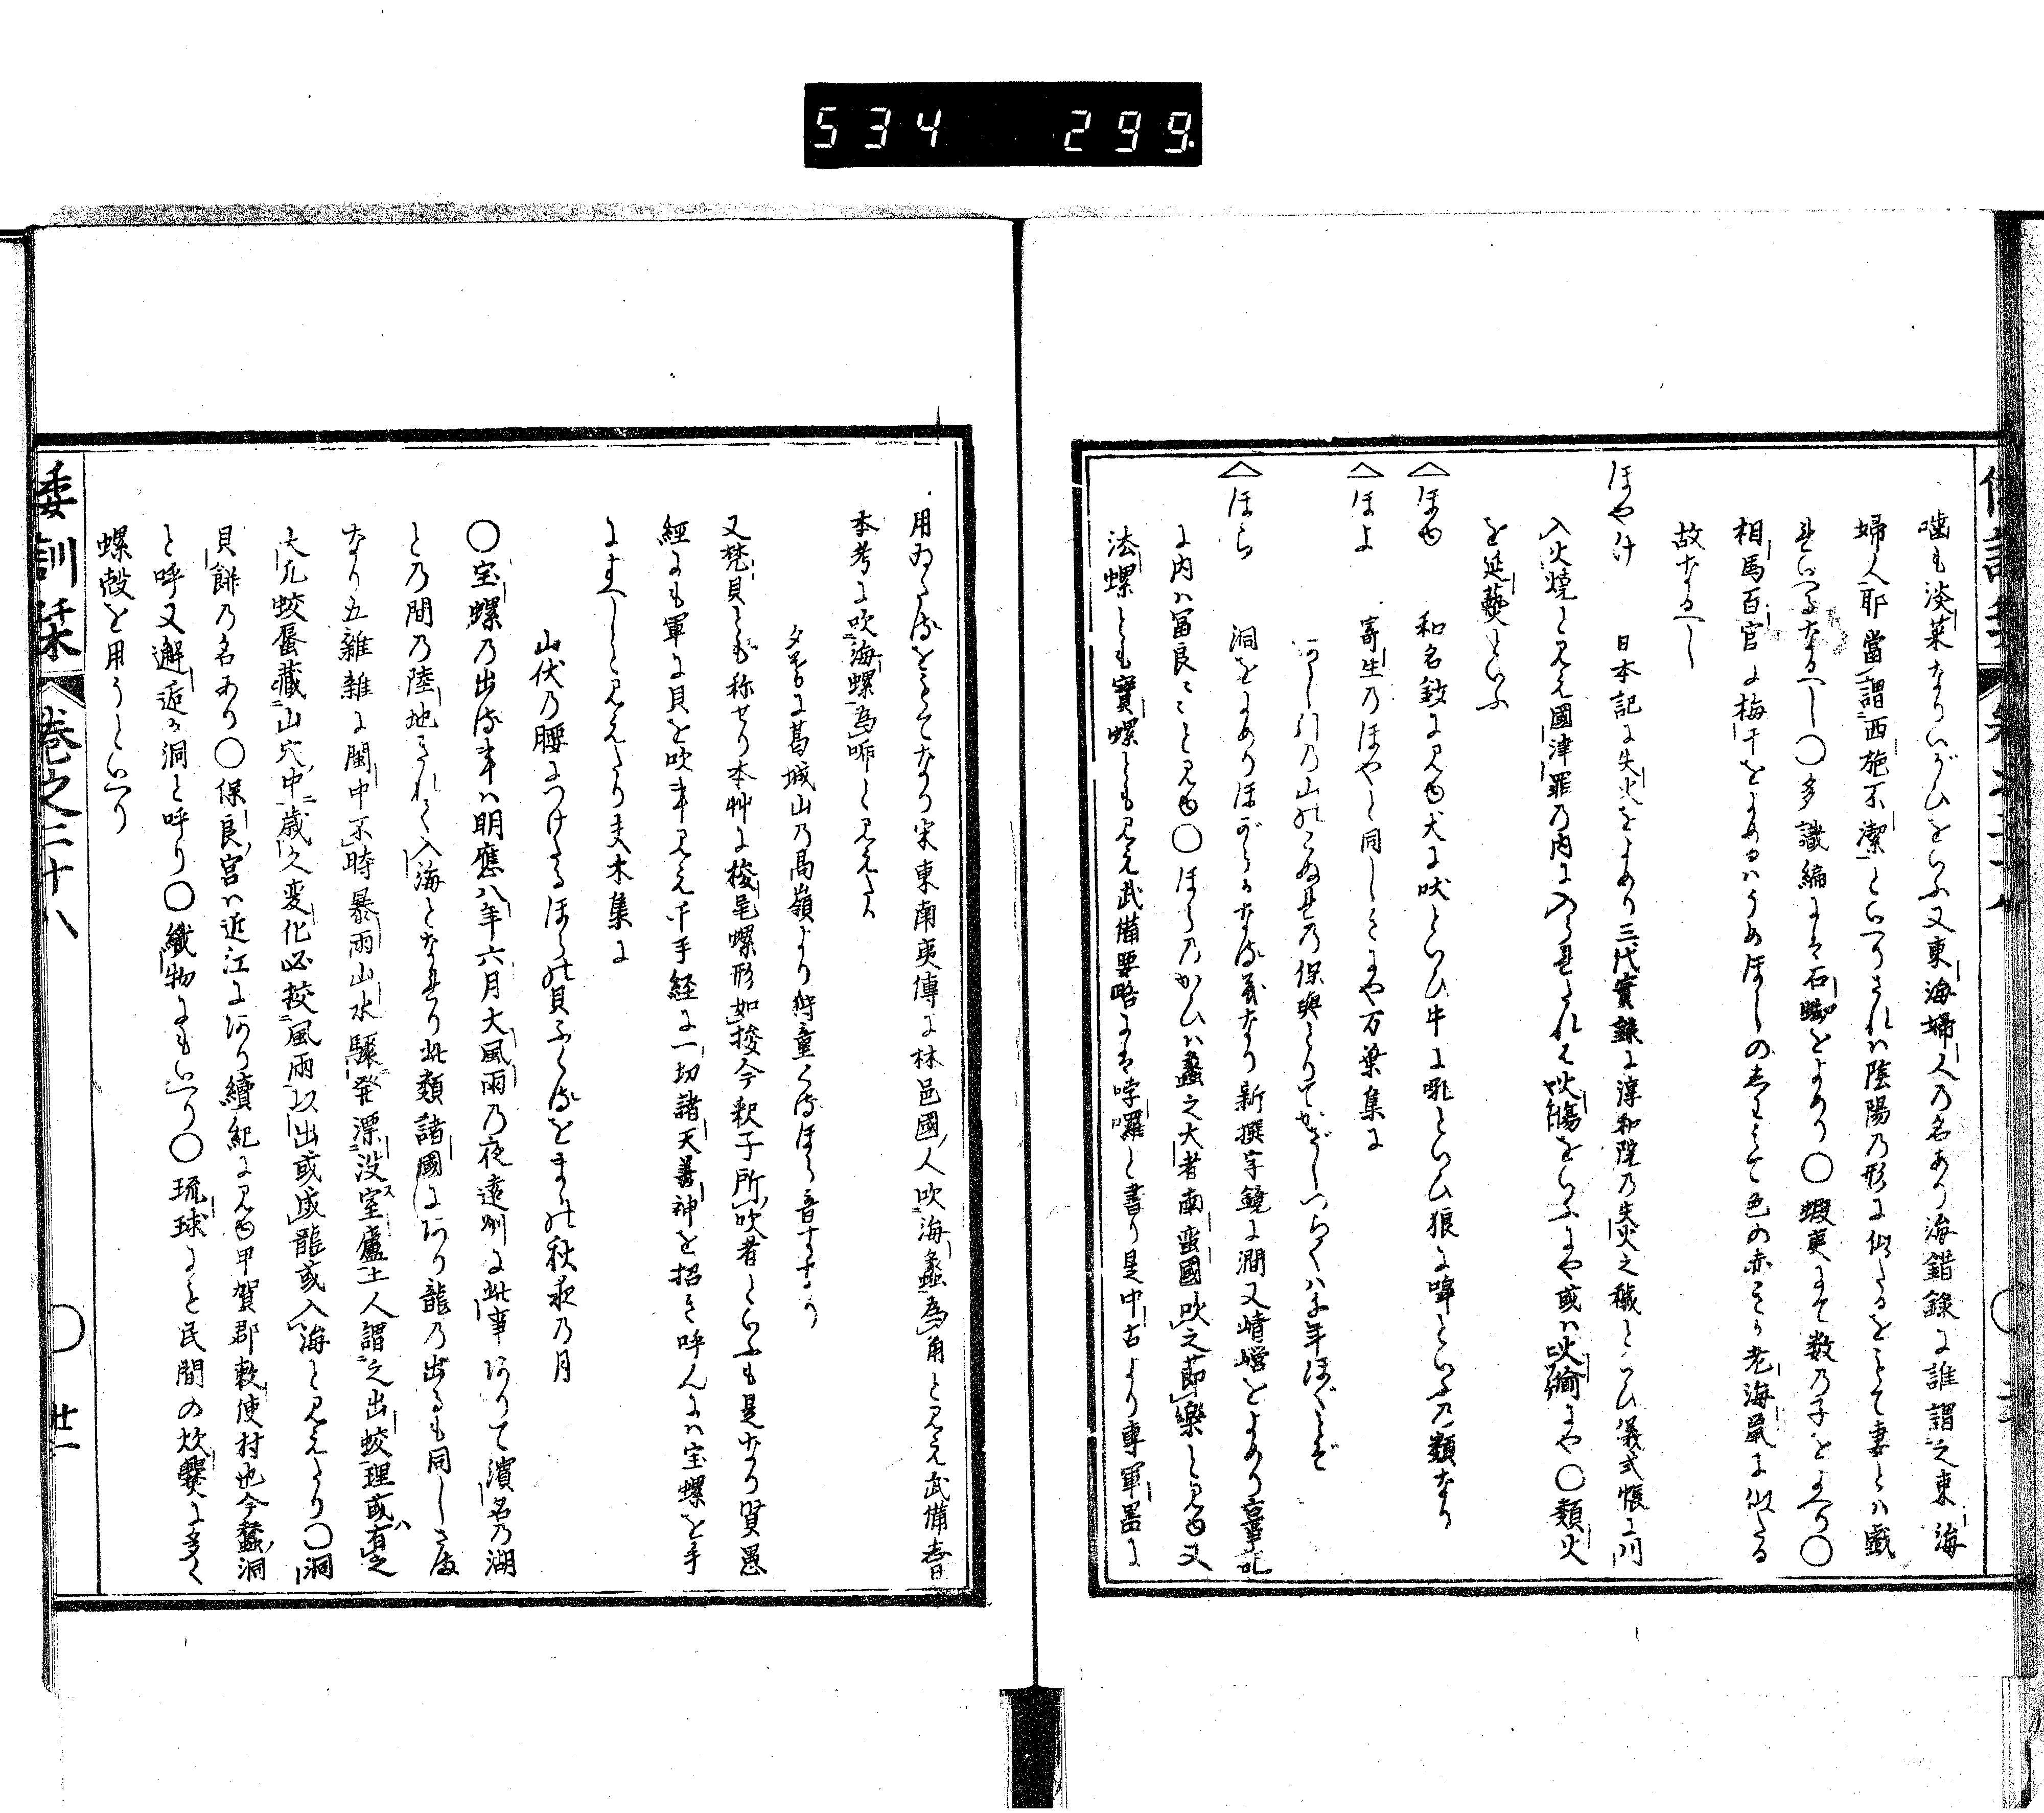 534 299
嚙も淡菜なりいがひをいふ又東海婦人の名あり海錯錄に誰謂之東海
婦人耶當謂西施不潔といへりされは陰陽の形に似たるをもて妻とハ戯
れいへるなるへし〇多識編に石をよめり〇蝦夷にて数の子をよへり〇
相馬百官に梅干をよめるハうめほしのまゝにて色の赤きか老海鼠に似たる
故なるへし
ほやけ 日本記に失火をよめり三代實錄に淳和院の失火之穢といひ儀式帳に川
入火燒と見え國津罪の内に入られたれは火傷をいふにや或ハにや〇類火
を延藝といふ
△ほゆ 和名鈔に見ゆ犬に吠といひ牛に吼といひ狼に嘷といふの類なり
△ほよ 寄生のほやと同しきにや万葉集に
あし引の山のこぬれの保與とりてかざしつらくハ千年ほぐとぞ
△ほら 洞をよめりほがらかなる義なり新撰字鏡に澗又嶒をよめり古事記
に内ハ冨良ことと見ゆ〇ほらのかひハ蠡之大者南蛮國吹之節樂と見ゆ又
法螺とも寶螺とも見え武備要略には哱囉と書り是中古より專軍器に
用ゐたるをもてなり宋東南夷傳に林邑國人吹海蠡為角と見え武備書
本考に吹海螺為哱と見えたり
夕されに葛城山の高嶺より狩童くたるほら吾すなり
又梵貝とも称せり本艸に梭尾螺形如梭今釈子所吹者といふも是なり賢愚
經にも軍に貝を吹事見え千手経に一切諸天善神を招き呼んにハ宝螺を手
にすへしと見えたり夫木集に
山伏の腰につけたるほらの貝ふくるまの秋夜の月
〇宝螺の出る事ハ明應八年六月大風雨の夜遠州に此事ありて濱名の湖
との間の陸地きれて入海となれり此類諸國にあり龍の出るも同しさま
なり五雜雑に閩中不時暴雨山水驟発漂没室廬土人謂之出蛟理或有之
大凡蛟蜃藏山穴中歳久変化必挍風雨以出或成龍或入海と見えたり〇洞
貝餅の名あり〇保良宮ハ近江にあり續紀に見ゆ甲賀郡敕使村也今蠶洞
と呼又邂逅か洞と呼り〇織物にもいへり〇琉球にも民間の炊爨に多く
螺殻を用うといへり
倭訓栞 卷之二十八 〇 廿一